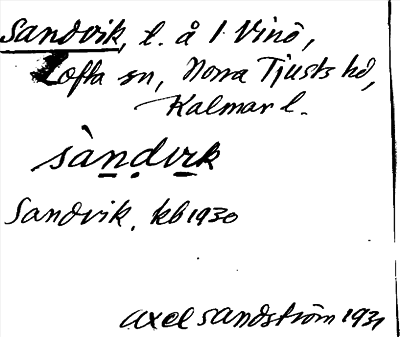 Sandvik, l. å l. Vinö,
Lofta sn, Norra Tjusts hd,
Kalmar l.
sàndvik
Sandvik, kb 1930
Axel Sandström 1931